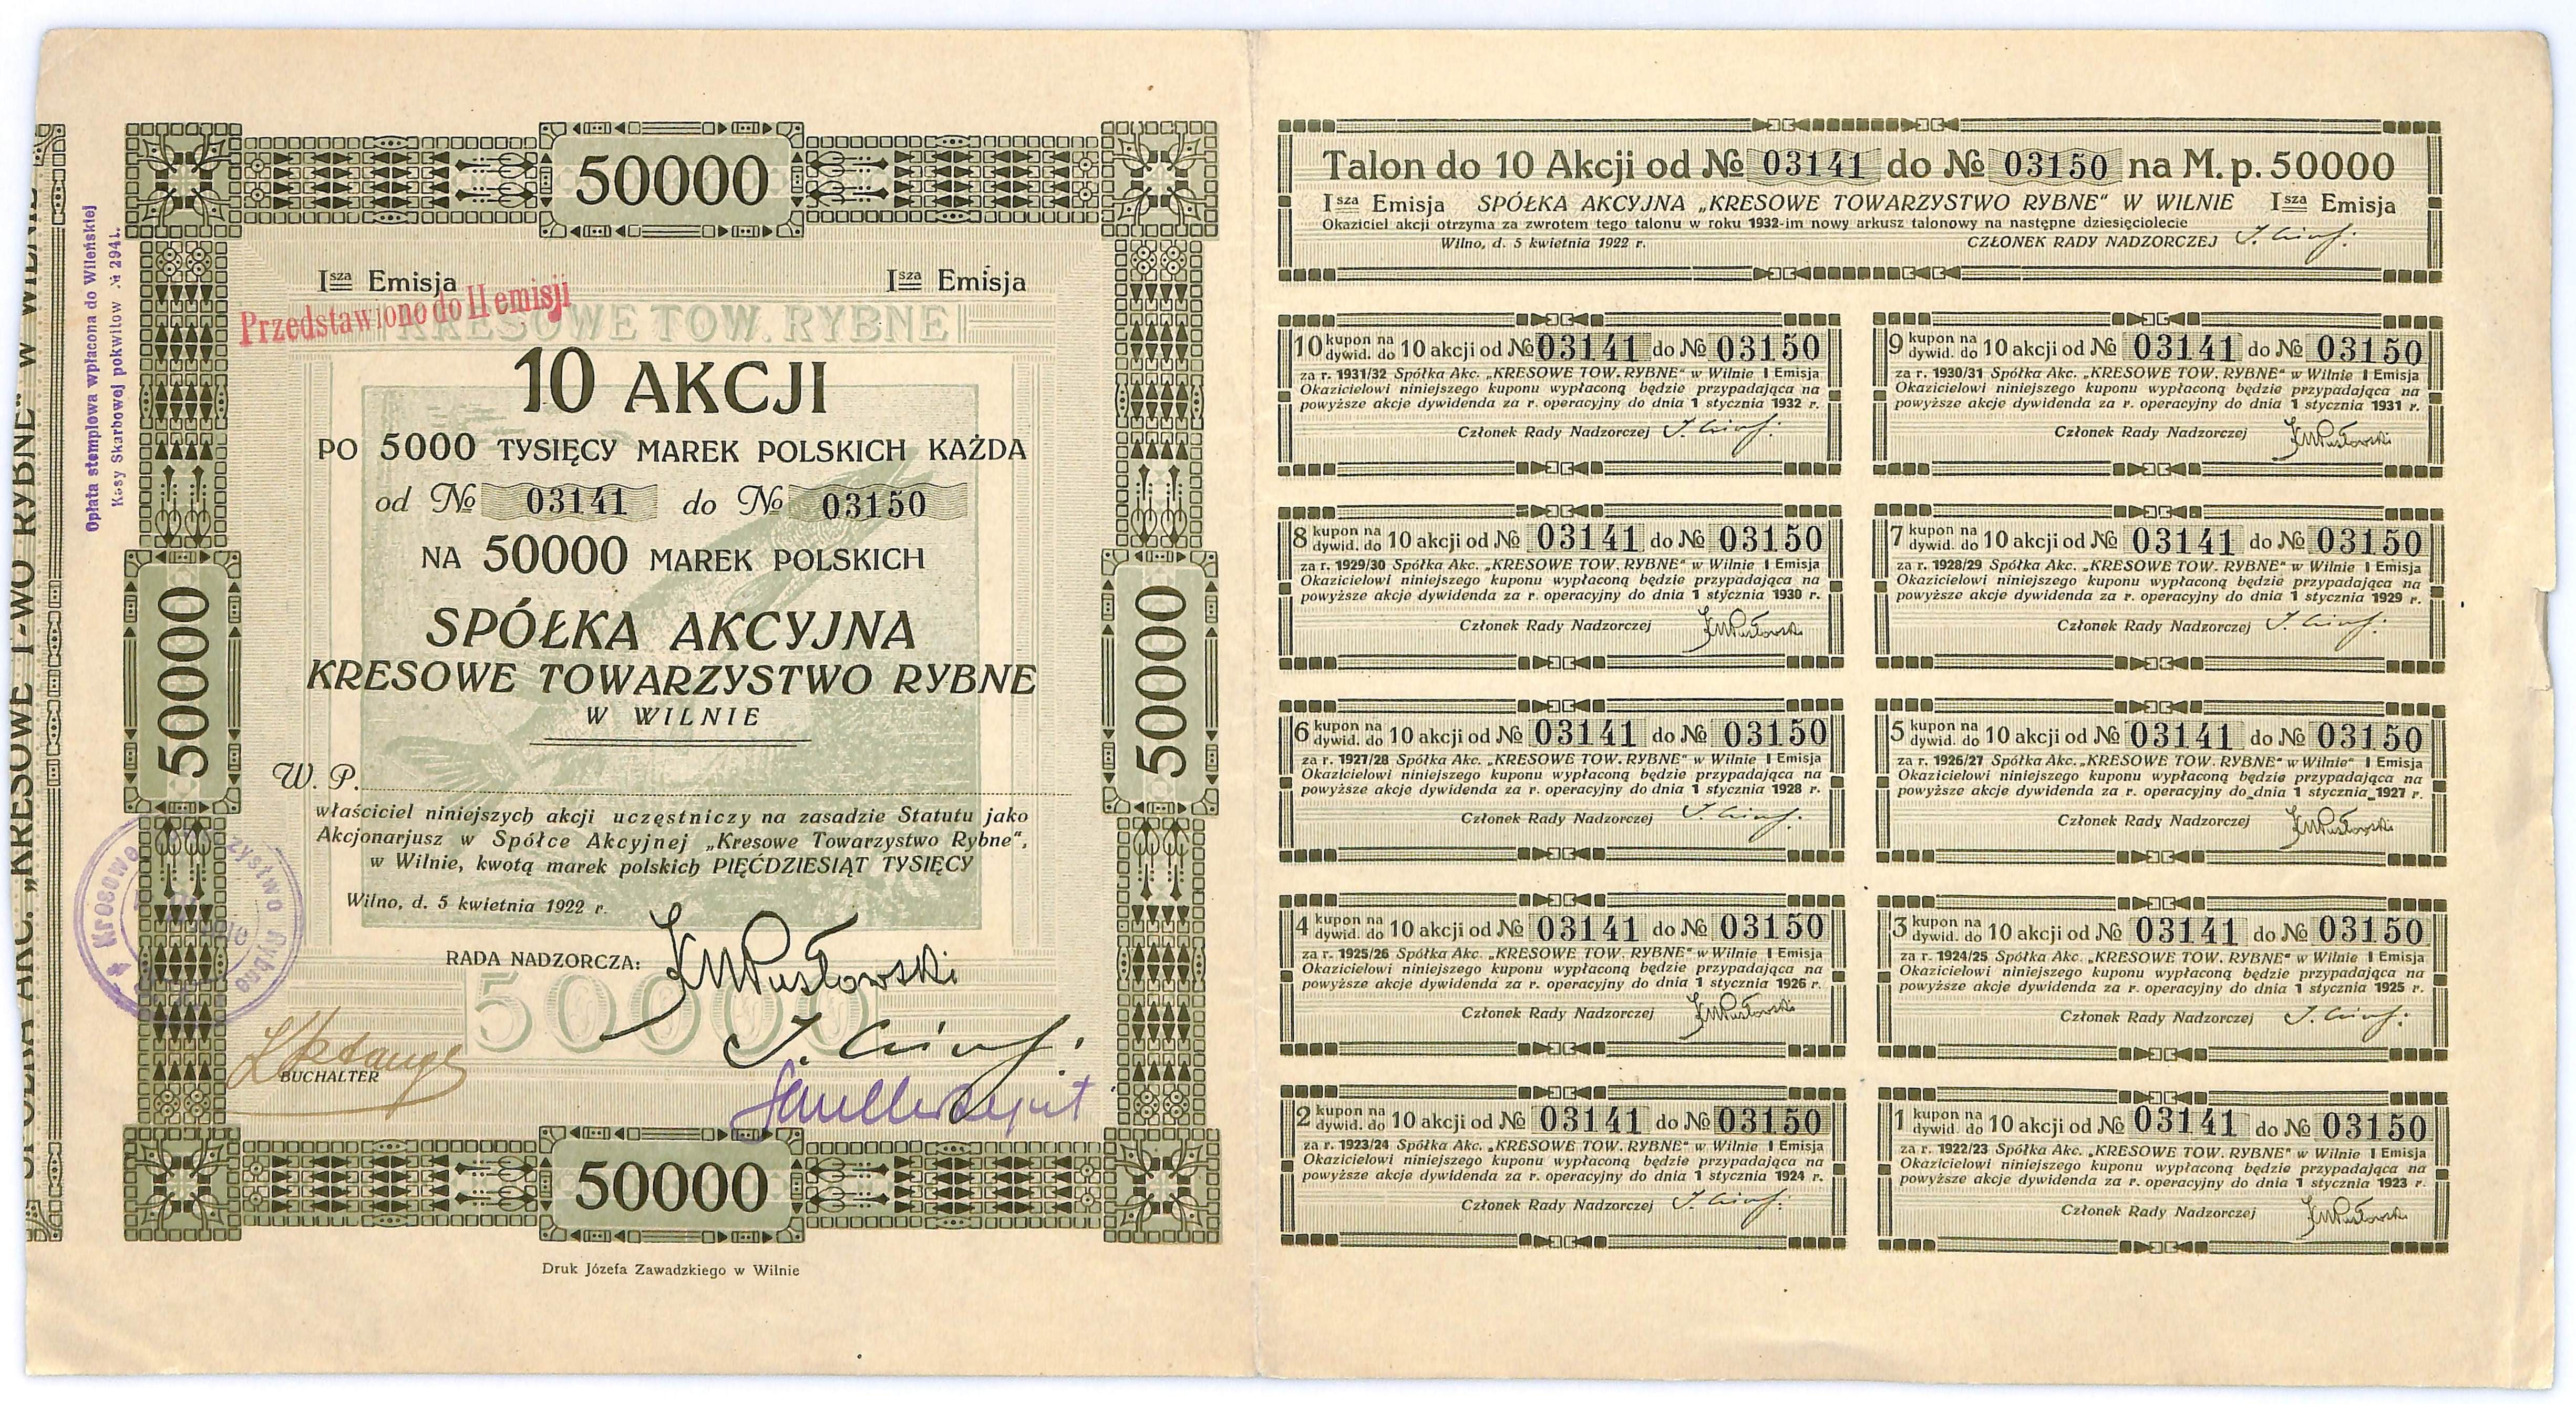 SPÓŁKA AKC. „KRESOWE T-WO RYBNE" W WILNIE
Opłata stemplowa wpłacona do Wileńskiej
Kasy Skarbowej pokwitow № 2941.
50000
50000
50000
50000
Isza Emisja Isza Emisja
Przedstawiono do II emisji
KRESOWE TOW. RYBNE
10 AKCJI
PO 5000 TYSIĘCY MAREK POLSKICH KAŻDA
od № 03141 do № 03150
NA 50000 MAREK POLSKICH
SPÓŁKA AKCYJNA
KRESOWE TOWARZYSTWO RYBNE
W WILNIE
W. P.
właściciel niniejszych akcji uczęstniczy na zasadzie Statutu jako
Akcjonarjusz w Spółce Akcyjnej „Kresowe Towarzystwo Rybne",
w Wilnie, kwotą marek polskich PIĘĆDZIESIĄT TYSIĘCY
Wilno, d. 5 kwietnia 1922 r.
RADA NADZORCZA:
50000
BUCHALTER
Druk Józefa Zawadzkiego w Wilnie
Talon do 10 Akcji od № 03141 do № 03150 na M. p. 50000
Isza Emisja SPÓŁKA AKCYJNA „KRESOWE TOWARZYSTWO RYBNE" W WILNIE Isza Emisja
Okaziciel akcji otrzyma za zwrotem tego talonu w roku 1932-im nowy arkusz talonowy na następne dziesięciolecie
Wilno, d. 5 kwietnia 1922 r. CZŁONEK RADY NADZORCZEJ
10 kupon na dywid. do 10 akcji od № 03141 do № 03150
za r. 1931/32 Spółka Akc. „KRESOWE TOW. RYBNE" w Wilnie I Emisja
Okazicielowi niniejszego kuponu wypłaconą będzie przypadająca na
powyższe akcje dywidenda za r. operacyjny do dnia 1 stycznia 1932 r.
Członek Rady Nadzorczej
9 kupon na dywid. do 10 akcji od № 03141 do № 03150
za r. 1930/31 Spółka Akc. „KRESOWE TOW. RYBNE" w Wilnie I Emisja
Okazicielowi niniejszego kuponu wypłaconą będzie przypadająca na
powyższe akcje dywidenda za r. operacyjny do dnia 1 stycznia 1931 r.
Członek Rady Nadzorczej
8 kupon na dywid. do 10 akcji od № 03141 do № 03150
za r. 1929/30 Spółka Akc. „KRESOWE TOW. RYBNE" w Wilnie I Emisja
Okazicielowi niniejszego kuponu wypłaconą będzie przypadająca na
powyższe akcje dywidenda za r. operacyjny do dnia 1 stycznia 1930 r.
Członek Rady Nadzorczej
7 kupon na dywid. do 10 akcji od № 03141 do № 03150
za r. 1928/29 Spółka Akc. „KRESOWE TOW. RYBNE" w Wilnie I Emisja
Okazicielowi niniejszego kuponu wypłaconą będzie przypadająca na
powyższe akcje dywidenda za r. operacyjny do dnia 1 stycznia 1929 r.
Członek Rady Nadzorczej
6 kupon na dywid. do 10 akcji od № 03141 do № 03150
za r. 1927/28 Spółka Akc. „KRESOWE TOW. RYBNE" w Wilnie I Emisja
Okazicielowi niniejszego kuponu wypłaconą będzie przypadająca na
powyższe akcje dywidenda za r. operacyjny do dnia 1 stycznia 1928 r.
Członek Rady Nadzorczej
5 kupon na dywid. do 10 akcji od № 03141 do № 03150
za r. 1926/27 Spółka Akc. „KRESOWE TOW. RYBNE" w Wilnie" I Emisja
Okazicielowi niniejszego kuponu wypłaconą będzie przypadająca na
powyższe akcje dywidenda za r. operacyjny do dnia 1 stycznia 1927 r.
Członek Rady Nadzorczej
4 kupon na dywid. do 10 akcji od № 03141 do № 03150
za r. 1925/26 Spółka Akc. „KRESOWE TOW. RYBNE" w Wilnie I Emisja
Okazicielowi niniejszego kuponu wypłaconą będzie przypadająca na
powyższe akcje dywidenda za r. operacyjny do dnia 1 stycznia 1926 r.
Członek Rady Nadzorczej
3 kupon na dywid. do 10 akcji od № 03141 do № 03150
za r. 1924/25 Spółka Akc. „KRESOWE TOW. RYBNE" w Wilnie I Emisja
Okazicielowi niniejszego kuponu wypłaconą będzie przypadająca na
powyższe akcje dywidenda za r. operacyjny do dnia 1 stycznia 1925 r.
Członek Rady Nadzorczej
2 kupon na dywid. do 10 akcji od № 03141 do № 03150
za r. 1923/24 Spółka Akc. „KRESOWE TOW. RYBNE" w Wilnie I Emisja
Okazicielowi niniejszego kuponu wypłaconą będzie przypadająca na
powyższe akcje dywidenda za r. operacyjny do dnia 1 stycznia 1924 r.
Członek Rady Nadzorczej
1 kupon na dywid. do 10 akcji od № 03141 do № 03150
za r. 1922/23 Spółka Akc. „KRESOWE TOW. RYBNE" w Wilnie I Emisja
Okazicielowi niniejszego kuponu wypłaconą będzie przypadająca na
powyższe akcje dywidenda za r. operacyjny do dnia 1 stycznia 1923 r.
Członek Rady Nadzorczej